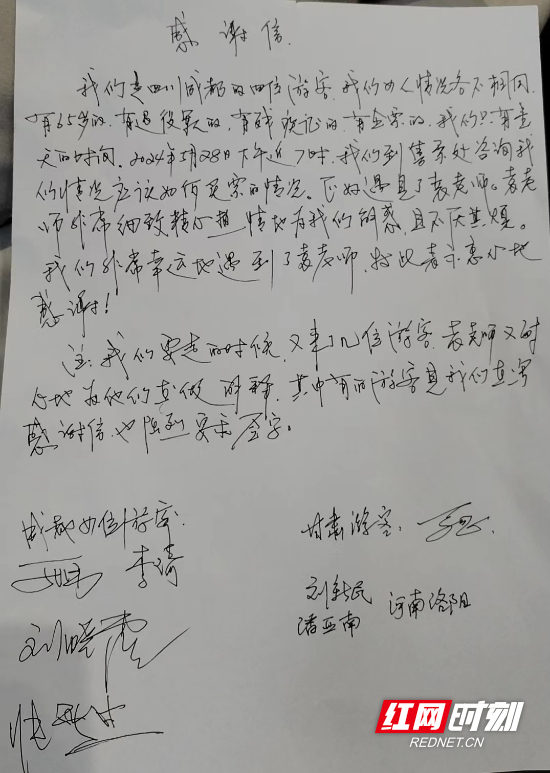 感谢信.
我们是四川成都的四位游客.我们四人情况各不相同,
有65岁的.有退役军的.有残疾证的.有全票的.我们只有壹
天的时间。2024年5月28日下午近7时.我们到售票处咨询我
们的情况应该如何买票的情况。正好遇见了袁老师。袁老
师非常细致精心热情地为我们解惑,且不厌其烦。
我们非常幸运地遇到了袁老师,特此表示衷心地
感谢!
注:我们要走的时候,又来了几位游客.袁老师又耐
心地为他们在做解释,其中有的游客见我们在写
感谢信.也强烈要求签字。
成都四位游客:
李琦
刘晓
甘肃游客:
刘新民
潘亚南 河南洛阳
红网时刻
REDNET.CN